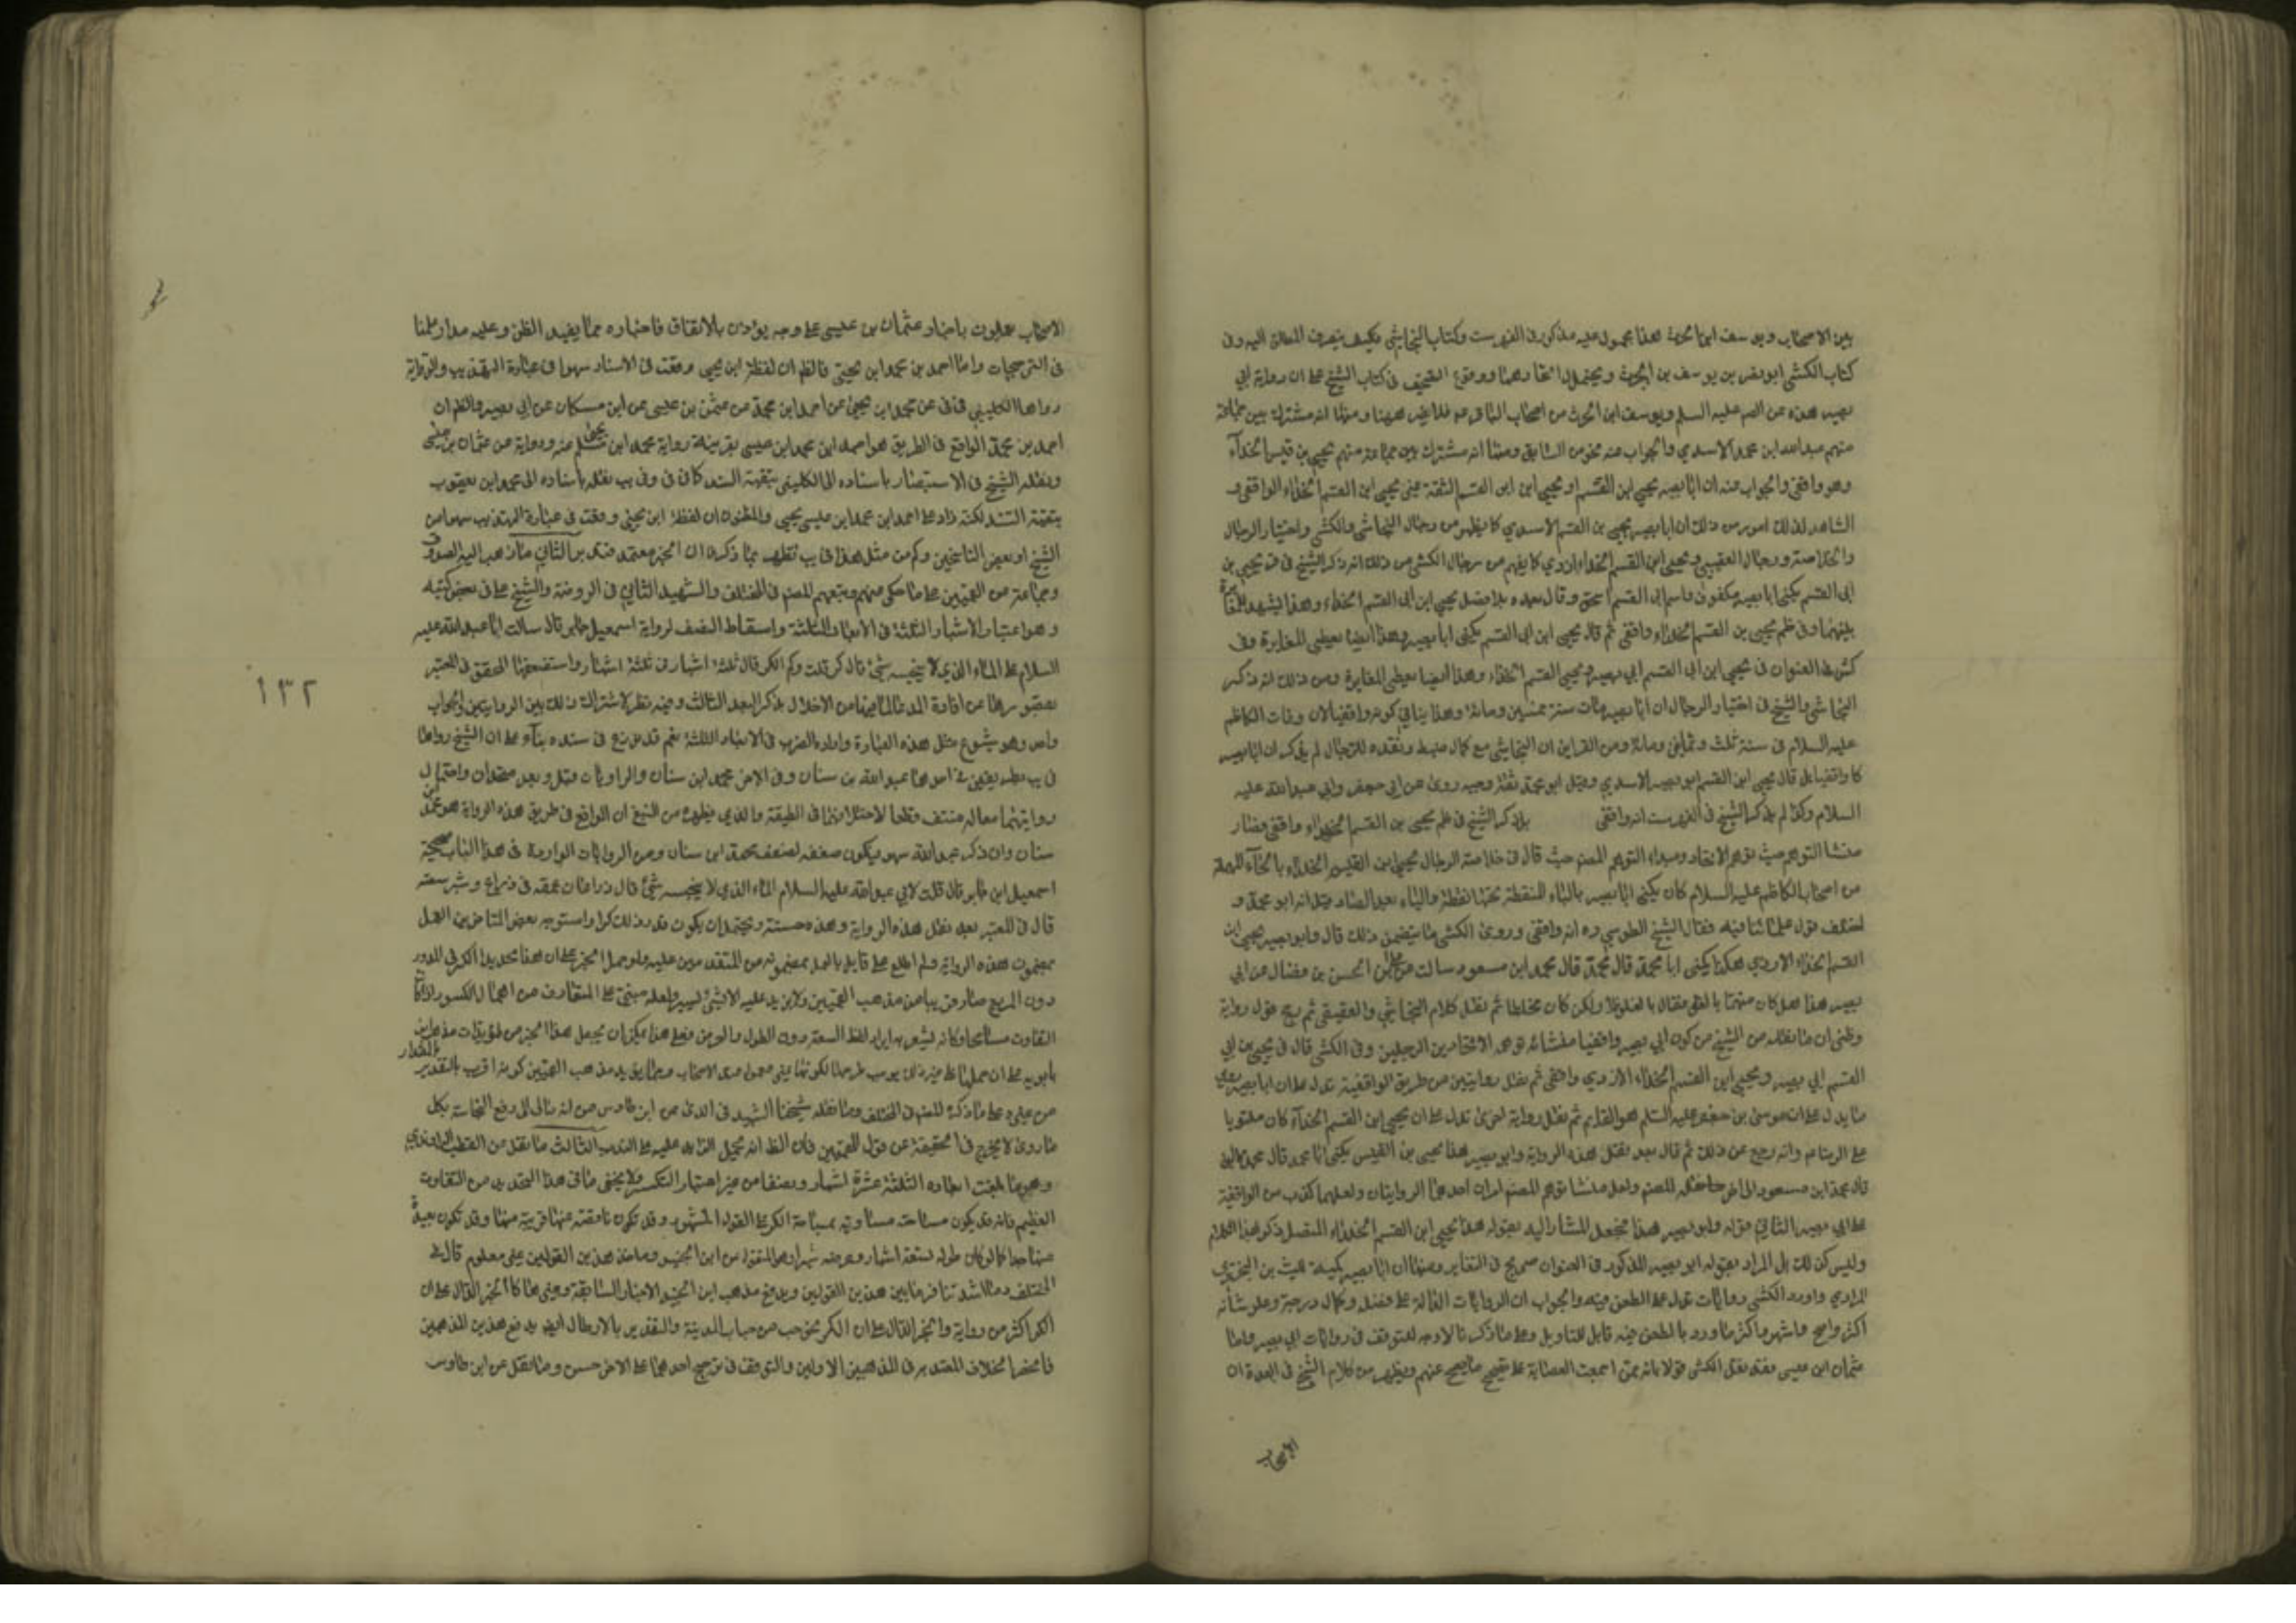 بين الاصحاب ويوسف ابن الحرث هذا مجهول غير مذكور في الفهرست وكتاب النجاشي فكيف ينصرف المطلق اليه وفي
كتاب الكشي ابو نصر بن يوسف بن الحرث ويحتمل اتحادهما ووقوع التصحيف في كتاب الشيخ على ان رواية ابي
بصير هذه عن الصم عليه السلم ويوسف ابن الحرث من اصحاب الباقر عم فلا تغير ههنا ومنها انه مشترك بين جماعة
منهم عبد الله ابن محمد الاسدي والجواب عنه نحو من السابق ومنها انه مشترك بين جماعة منهم يحيى بن قيس الحذآء
وهو واقفي والجواب منه ان ابا بصير يحيى ابن القسم او يحيى ابن ابي القسم الثقة غير يحيى ابن القسم الحذاء الواقفي و
الشاهد لذلك امور من ذلك ان ابا بصير يحيى بن القسم الاسدي كما يظهر من رجال النجاشي والكشي واختيار الرجال
والخلاصة ورجال العقيقي ويحيى ابن القسم الحذاء ازدي كما يفهم من رجال الكشي من ذلك انه ذكر الشيخ في قر يحيى بن
ابي القسم يكنى ابا بصير مكفوف واسم ابي القسم اسحق وقال بعده بلا فصل يحيى ابن ابي القسم الحذاء وهذا يشهد بالمغايرة
بينهما وفي ظم يحيى بن القسم الحذاء واقفي ثم قال يحيى ابن ابي القسم يكنى ابا بصير وهذا ايضا يعطي المغايرة وفي
كش العنوان في يحيى ابن ابي القسم ابي بصير ويحيى القسم الحذاء وهذا ايضا يعطي المغايرة ومن ذلك انه ذكر
النجاشي والشيخ في اختيار الرجال ان ابا بصير مات سنة خمسين ومائة وهذا ينافي كونه واقفيا لان وفات الكاظم
عليه السلام في سنة ثلث وثمانين ومائة ومن القراين ان النجاشي مع كمال ضبطه ونقده للرجال لم يذكر ان ابا بصير
كان واقفيا بل قال يحيى ابن القسم ابو بصير الاسدي وقيل ابو محمد ثقة وجيه روى عن ابي جعفر وابي عبد الله عليه
السلام وكذا لم يذكر الشيخ في الفهرست انه واقفي بل ذكر الشيخ في ظم يحيى بن القسم الحذاء واقفي فصار
منشا التوهم حيث توهم الاتحاد ومبداء التوهم المصنف حيث قال في خلاصة الرجال يحيى ابن القسم الحذاء بالحآء المهملة
من اصحاب الكاظم عليه السلام كان يكنى ابا بصير بالباء المنقطة تحتها نقطة والياء بعد الصاد وقيل انه ابو محمد و
اختلف قول علمائنا فيه فقال الشيخ الطوسي ره انه واقفي وروى الكشي ما يتضمن ذلك قال وابو بصير يحيى ابن
القسم الحذاء الازدي هكذا يكنى ابا محمد قال محمد ابن مسعود سالت علي ابن الحسن بن فضال عن ابي
بصير هذا هل كان متهما بالغلو فقال بالغلو فلا ولكن كان مخلطا ثم نقل كلام النجاشي والعقيقي ثم رجح قبول رواية
وظني ان ما نقله من الشيخ من كون ابي بصير واقفيا منشائه توهم الاتحاد بين الرجلين وفي الكشي قال في يحيى بن ابي
القسم ابي بصير ويحيى ابن القسم الحذاء الازدي واقفي ثم نقل روايتين من طريق الواقفية تدل على ان ابا بصير روى
ما يدل على ان موسى بن جعفر عليه السلم هو القايم ثم نقل رواية اخرى تدل على ان يحيى ابن القسم الحذآء كان ملتويا
على الرضا عم وانه رجع عن ذلك ثم قال بعد نقل هذه الرواية وابو بصير هذا يحيى بن القيس يكنى ابا محمد قال محمد
قال محمد ابن مسعود الى اخر ما نقله المصنف ولعل منشا توهم المصنف امران احدهما الروايتان ولعلهما كذب من الواقفية
على ابي بصير الثاني قوله وابو بصير هذا فجعل المشار اليه بقوله هذا يحيى ابن القسم الحذاء المتصل ذكره بهذا الكلام
وليس كذلك بل المراد بقوله ابو بصير المذكور في العنوان صريح في التغاير ومنها ان ابا بصير كنية ليث بن البختري
المرادي واورد الكشي روايات تدل على الطعن فيه والجواب ان الروايات الدالة على فضله وكمال درجته وعلو شأنه
اكثر واصح واشهر واكثر ما ورد بالطعن فيه قابل للتاويل وعلى ما ذكرنا لا وجه للتوقف في روايات ابي بصير واما
عثمان ابن عيسى فقد نقل الكشي قولا بانه ممن اجمعت العصابة على تصحيح ما يصح عنهم ويظهر من كلام الشيخ في العدة ان
الاصحاب
الاصحاب يعملون باخبار عثمان بن عيسى على وجه يؤذن بالاتفاق فاخباره مما يفيد الظن وعليه مدار علمنا
في الترجيحات واما احمد بن محمد ابن يحيى فالظم ان لفظة ابن يحيى وقعت في الاسناد سهوا في عبارة التهذيب والرواية
رواها الكليني في في عن محمد ابن يحيى عن احمد ابن محمد عن عثمن بن عيسى عن ابن مسكان عن ابي بصير والظم ان
احمد بن محمد الواقع في الطريق هو احمد ابن محمد ابن عيسى بقرينة رواية محمد ابن يحيى عنه وروايه عن عثمان بن عيسى
ونقله الشيخ في الاستبصار باسناده الى الكليني بتقية السند كما في في وفي يب نقله باسناده الى محمد ابن يعقوب
بتقية السند لكنه زاد على احمد ابن محمد ابن عيسى يحيى والمظنون ان لفظة ابن يحيى وقعت في عبارة التهذيب سهوا من
الشيخ او بعض الناسخين وكم من مثل هذا في يب فظهر بما ذكرنا ان الخبر معتمد فتدبر الثاني ما ذهب اليه الصدوق
وجماعة من القميين على ما حكى عنهم وتبعهم المصنف في المختلف والشهيد الثاني في الروضة والشيخ علي في بعض كتبه
وهو اعتبار الاشبار الثلثة في الابعاد الثلثة واسقاط النصف لرواية اسمعيل بن جابر قال سالت ابا عبد الله عليه
السلام عن الماء الذي لا ينجسه شئ قال كر قلت وكم الكر قال ثلثة اشبار في ثلثة اشبار واستضعفها المحقق في المعتبر
بقصورها عن افادة المدعا لما فيها من الاخلال بذكر البعد الثالث وفيه نظر لاشتراك ذلك بين الروايتين والجواب
واحد وهو شيوع مثل هذه العبارة وارادة الضرب في الابعاد الثلثة نعم قد ينازع في سنده بنآء على ان الشيخ رواها
في يب بطريقين في احدهما عبد الله بن سنان وفي الاخر محمد ابن سنان والراويان قبل وبعد متحدان واحتمال
روايتهما معا له منتف قطعا لاختلافهما في الطبقة والذي يظهر من التتبع ان الواقع في طريق هذه الرواية هو محمد بن
سنان وان ذكر عبد الله سهو فيكون ضعفه لضعف محمد ابن سنان ومن الروايات الواردة في هذا الباب صحيحة
اسمعيل ابن جابر قال قلت لابي عبد الله عليه السلام الماء الذي لا ينجسه شئ قال ذراعان عمقه في ذراع وشبر سعته
قال في المعتبر بعد نقل هذه الرواية وهذه حسنة ويحتمل ان يكون قدر ذلك كرا واستوجه بعض المتاخرين العمل
بمضمون هذه الرواية ولم اطلع على قايل بالعمل بمضمونه من المتقدمين عليه ولو حمل الخبر على ان هذا تحديد الكر في المدور
دون المربع صار قريبا من مذهب القميين ولا يزيد عليه الا بشئ يسير ولعله مبني على المتعارف من اهمال الكسور اذا كان
التفاوت مسامحا وكانه يشعر به ايراد لفظ السعة دون الطول والعرض فعلى هذا يمكن ان يجعل هذا الخبر من مؤيدات مذهب ابن
بابويه على ان حملها على غير ذلك يوجب طرحها لكونها غير معمول لدى الاصحاب ومما يؤيد مذهب القميين كونه اقرب بالتقدير بالمقدار
من على ما ذكره المصنف في المختلف وما نقله شيخنا الشهيد في الذكرى عن ابن طاوس من انه مال الى رفع النجاسة بكل
ما روى لا يخرج في الحقيقة عن قول القميين فان الظ انه يحمل الزايد عليه على الندب الثالث ما نقل من القطب الراوندي
وهو ما بلغت ابعاده الثلثة عشرة اشبار ونصفا من غير اعتبار التكسير ولا يخفى ما في هذا التحديد من التفاوت
العظيم فانه قد يكون مساحته مساوية بمساحة الكر على القول المشهور وقد تكون ناقصة عنها قريبة منها وقد تكون بعيدة
عنها جدا كما لو كان طوله تسعة اشبار وعرضه شبران المنقول من ابن الجنيد وماخذ هذين القولين غير معلوم قال في
المختلف وما اشد تنافر ما بين هذين القولين ويدفع مذهب ابن الجنيد الاخبار السابقة وغيرها كالخبر الدال على ان
الكر اكثر من رواية والخبر الدال على ان الكر نحو حب من حباب المدينة والتقدير بالارطال ايضا يدفع هذين المذهبين
فانحصر الخلاف المعتد به في المذهبين الاولين والتوقف في ترجيح احدهما على الاخر حسن وما نقل عن ابن طاوس
١٣٢